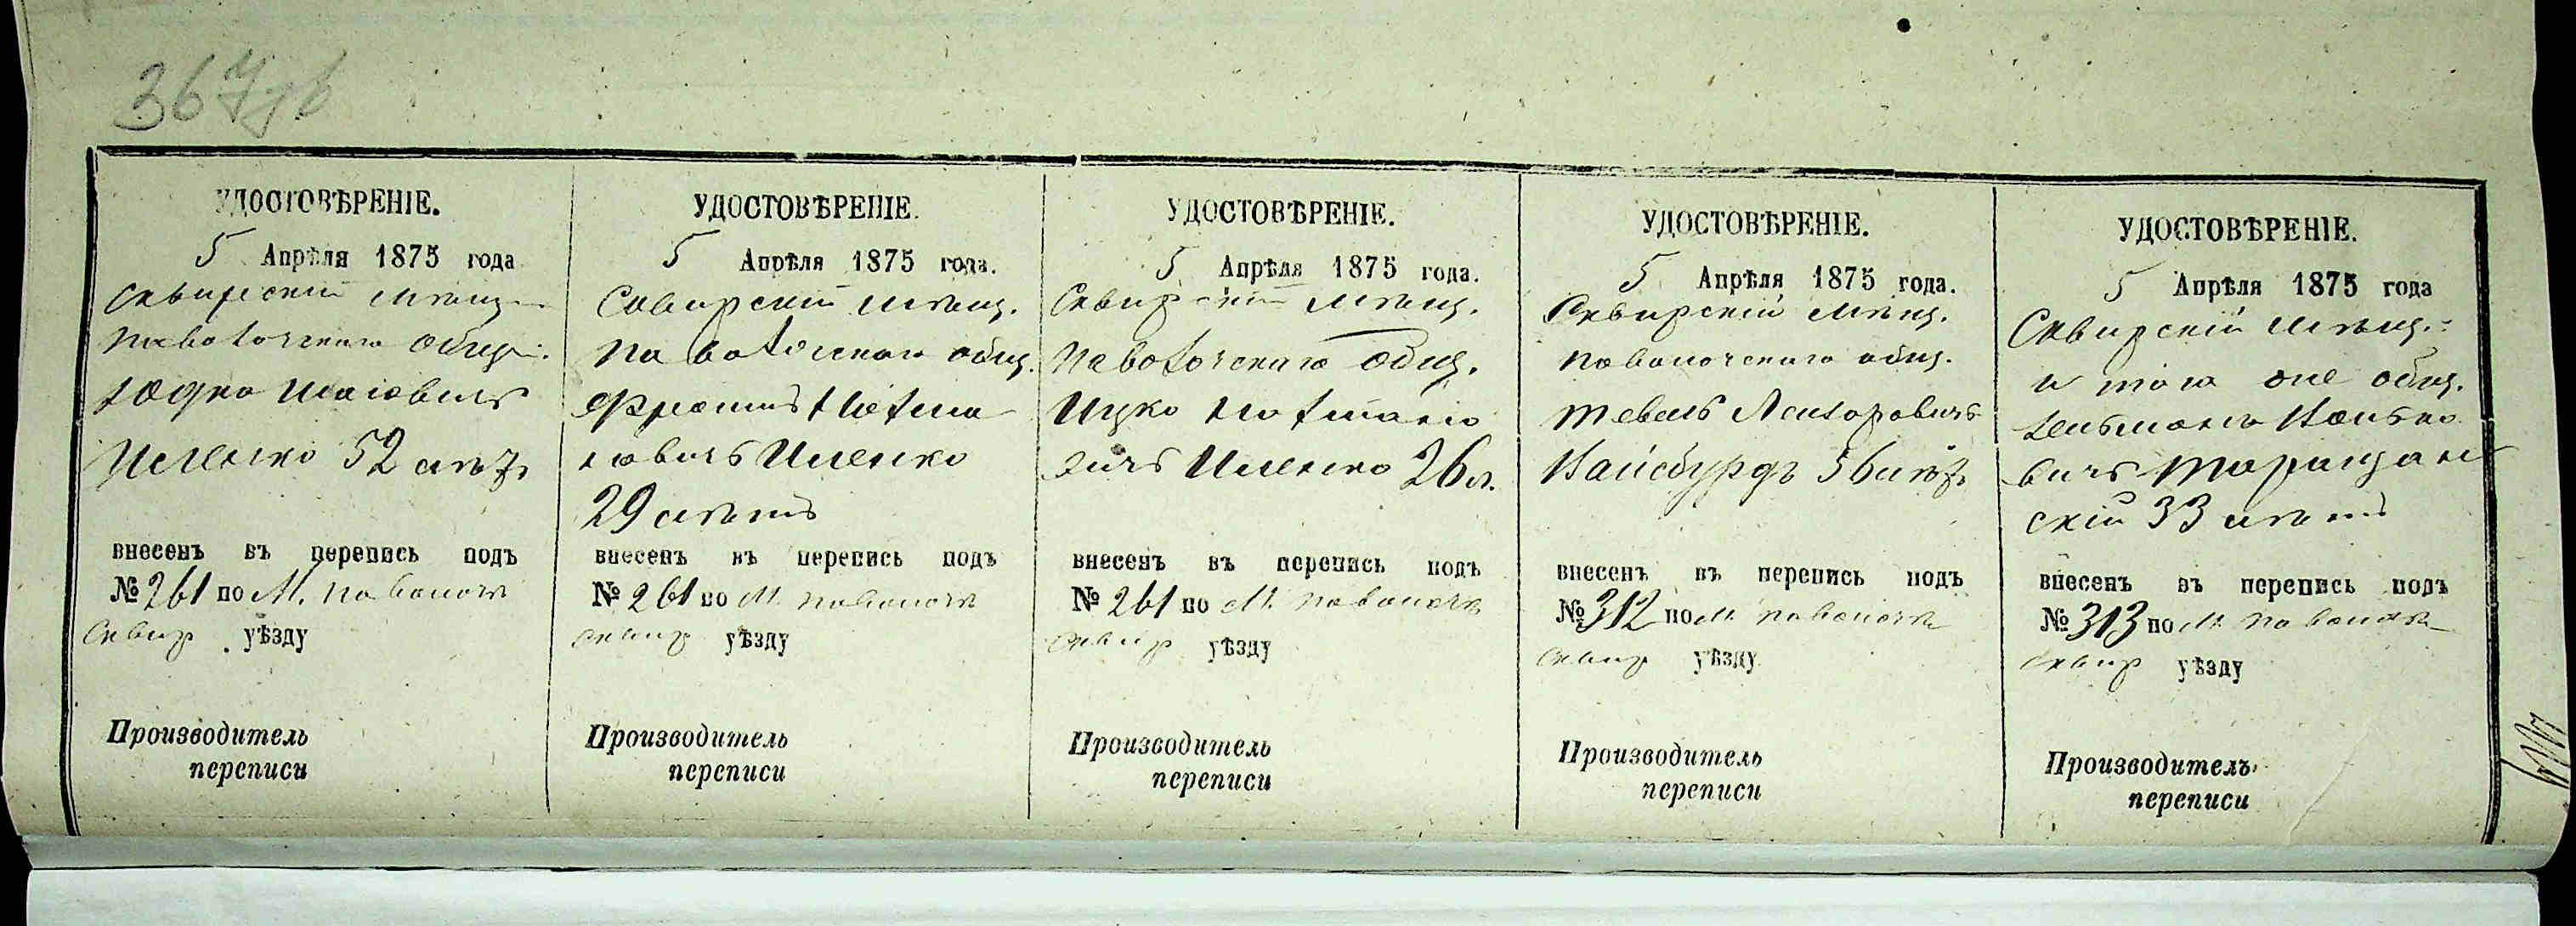 367
УДОСТОВѢРЕНІЕ.
5 Апрѣля 1875 года
Сквирскій мѣщ.
Паволочскаго общ.
Исленко 52 лѣтъ
внесенъ въ перепись подъ
№ 261 по М. Паволочи
Сквир уѣзду
Производитель
переписи
УДОСТОВѢРЕНІЕ.
5 Апрѣля 1875 года.
Сквирскій мѣщ.
Паволочскаго общ.
29 лѣтъ
внесенъ въ перепись подъ
№ 261 по М. Паволочи
Сквир уѣзду
Производитель
переписи
УДОСТОВѢРЕНІЕ.
5 Апрѣля 1875 года.
Сквирскій мѣщ.
Паволочскаго общ.
Ицко
26 л.
внесенъ въ перепись подъ
№ 261 по М. Паволочи
Сквир уѣзду
Производитель
переписи
УДОСТОВѢРЕНІЕ.
5 Апрѣля 1875 года.
Сквирскій мѣщ.
Паволочскаго общ.
Тевель Лейзоровичъ
Вайсбурдъ 56 лѣтъ
внесенъ въ перепись подъ
№ 312 по М. Паволочи
Сквир уѣзду
Производитель
переписи
УДОСТОВѢРЕНІЕ.
5 Апрѣля 1875 года
Сквирскій мѣщ.
и того же общ.
вичъ Таращан
скій 33 лѣтъ
внесенъ въ перепись подъ
№ 313 по М. Паволочи
Сквир уѣзду
Производитель
переписи